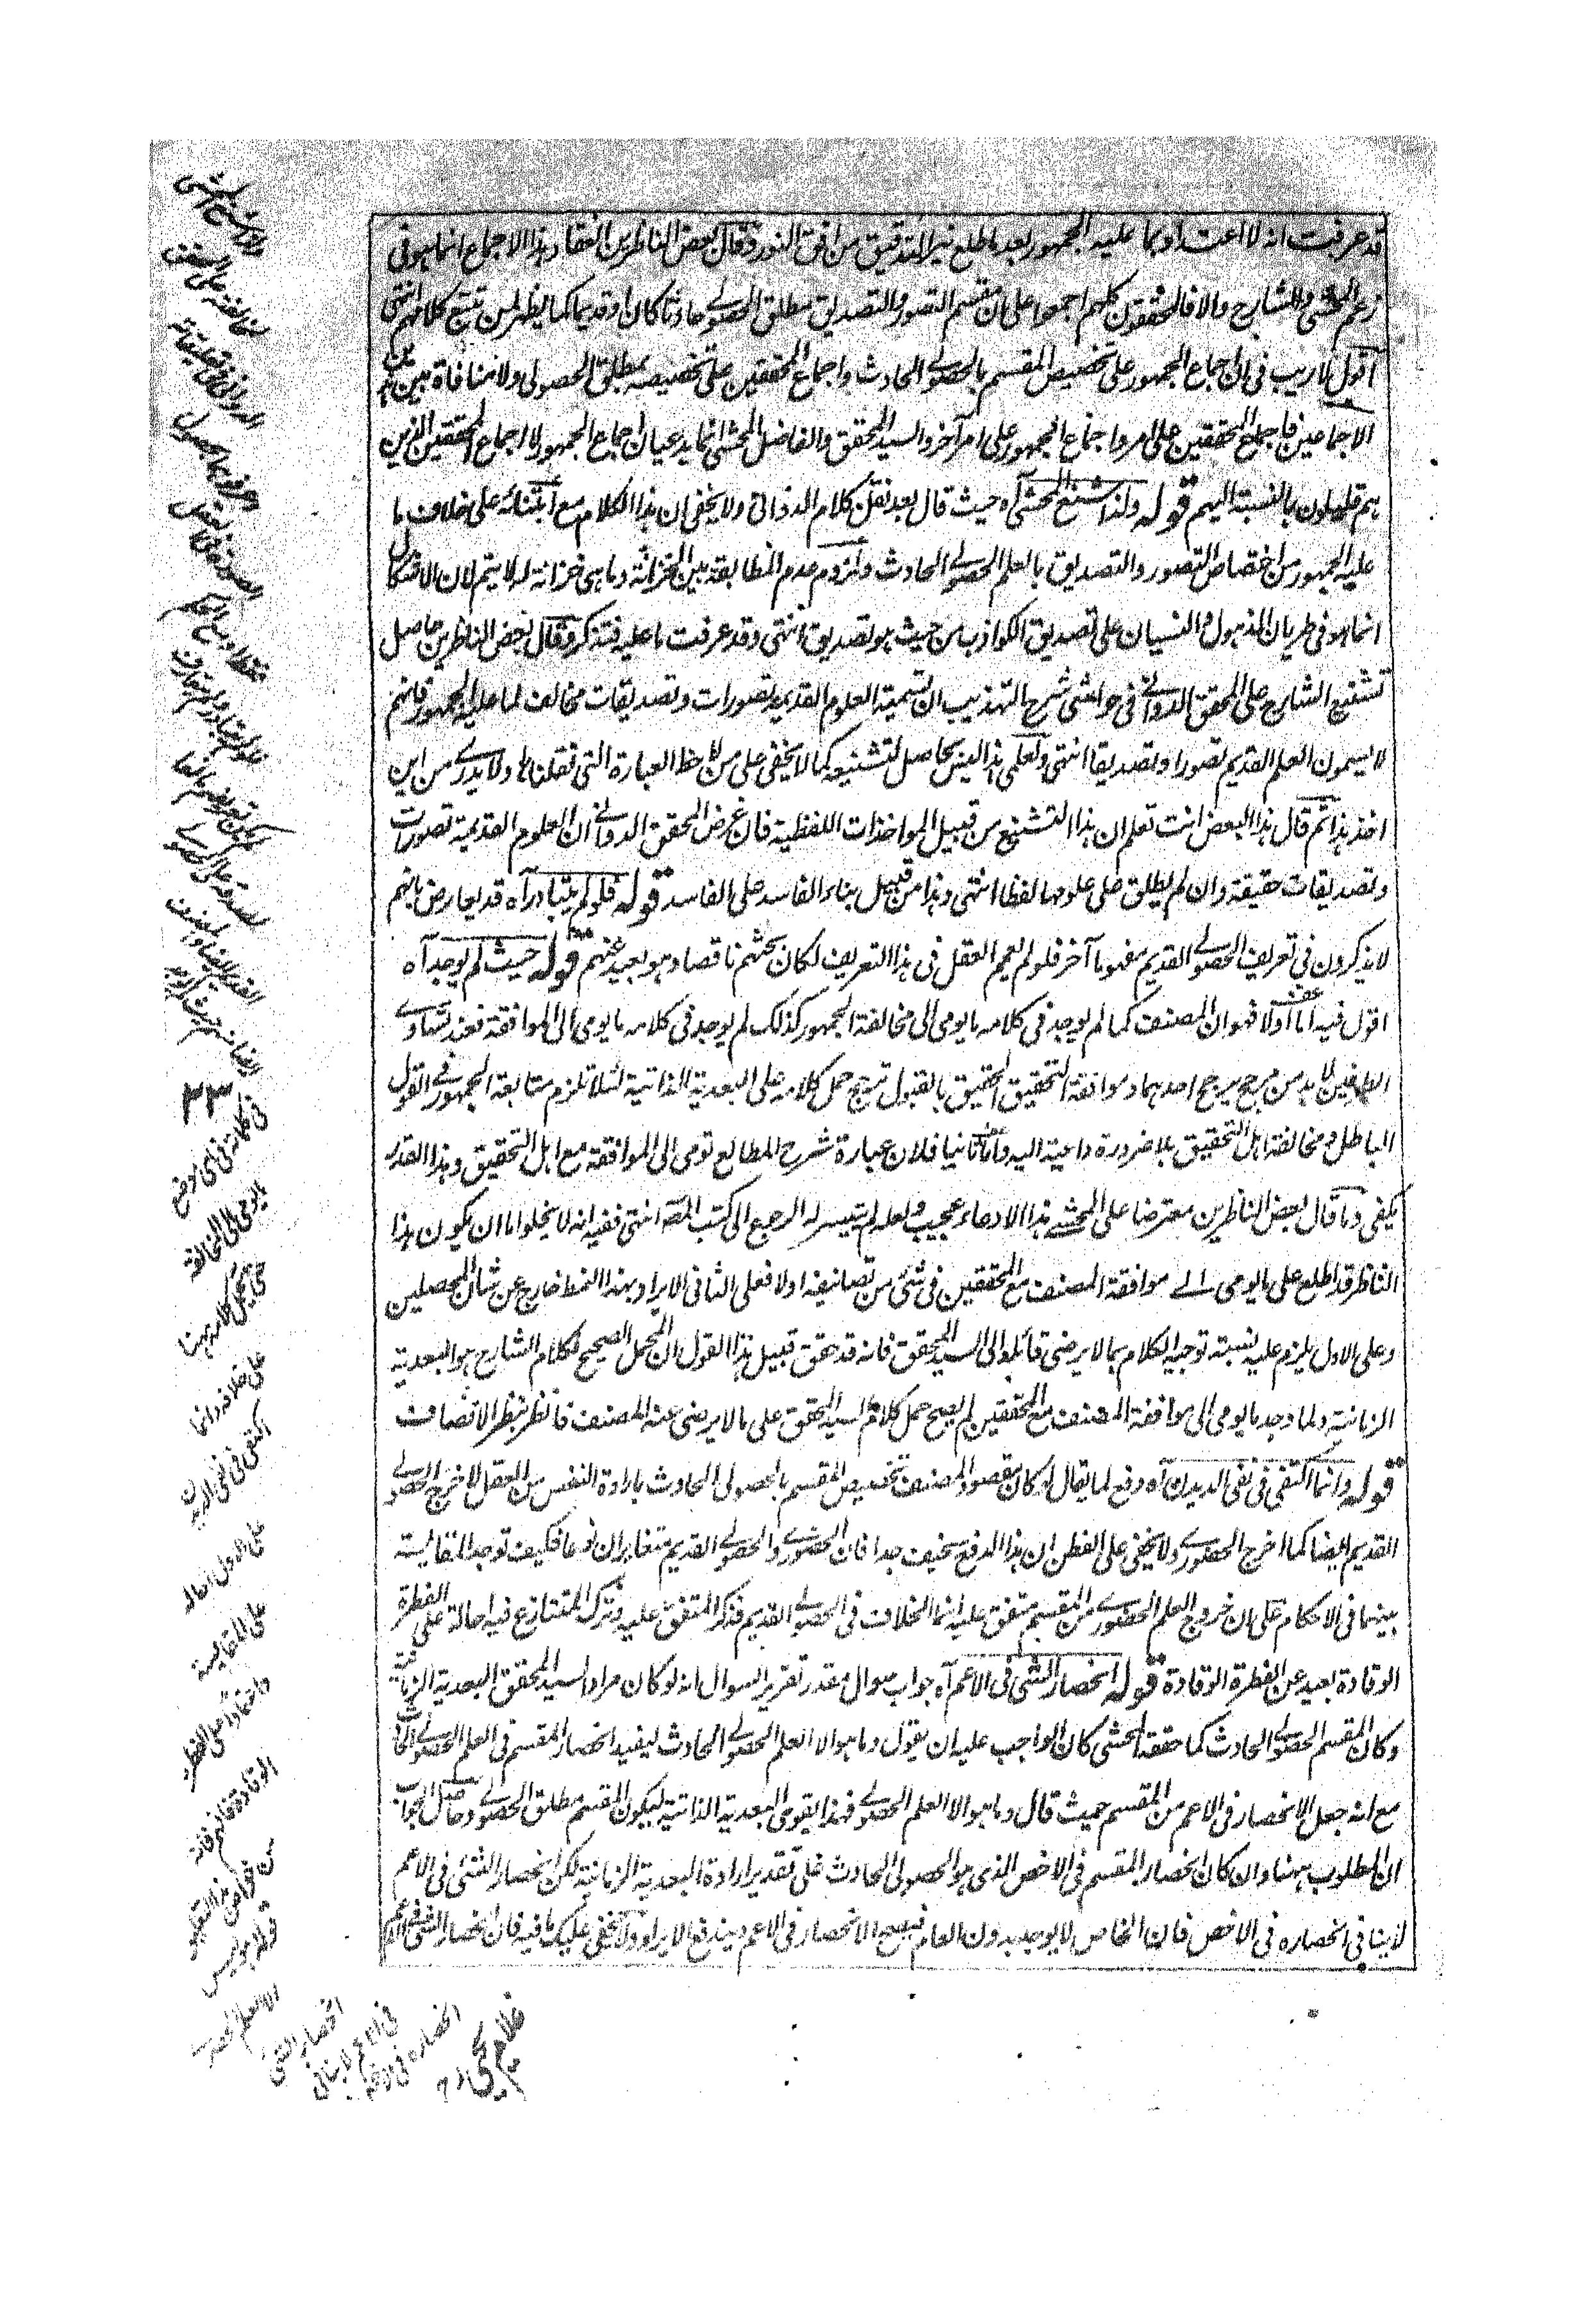 قد عرفت انه لا اعتداد بما عليه الجمهور بعد ما طلع نير التدقيق من افق النور وقال بعض الناظرين انعقاد هذا الاجماع انما هو فى
زعم المحشى والشارح والا فالمحققون كلهم اجمعوا على ان مقسم التصور والتصديق مطلق الحصولى حادثا كان او قديما كما يظهر لمن تتبع كلامهم انتهى
اقول لا ريب فى ان اجماع الجمهور على تخصيص المقسم بالحصولى الحادث واجماع المحققين على تخصيصه بمطلق الحصولى ولا منافاة بين هذين
الاجماعين فاجماع المحققين على امر واجماع الجمهور على امر آخر والسيد المحقق والفاضل المحشى انما يدعيان اجماع الجمهور لا اجماع المحققين الذين
هم قليلون بالنسبة اليهم قوله ولذا شنع المحشى آه حيث قال بعد نقل كلام الدوانى ولا يخفى ان هذا الكلام مع ابتنائه على خلاف ما
عليه الجمهور من اختصاص التصور والتصديق بالعلم الحصولى الحادث ولزوم عدم المطابقة بين الخزانة وما هى خزانة له لا يتم لان الاشكال
انما هو فى طريان الذهول والنسيان على تصديق الكواذب من حيث هو تصديق انتهى وقد عرفت ما عليه فتذكر وقال بعض الناظرين حاصل
تشنيع الشارح على المحقق الدوانى فى حواشى شرح التهذيب ان تسمية العلوم القديمة تصورات وتصديقات مخالف لما عليه الجمهور فانهم
لا يسمون العلم القديم تصورا وتصديقا انتهى ولعلمى هذا ليس بحاصل لتشنيعه كما لا يخفى على من لاحظ العبارة التى نقلناها ولا يدرى من اين
اخذ هذا ثم قال هذا البعض انت تعلم ان هذا التشنيع من قبيل المواخذات اللفظية فان غرض المحقق الدوانى ان العلوم القديمة تصورات
وتصديقات حقيقة وان لم يطلق على علومها لفظا انتهى وهذا من قبيل بناء الفاسد على الفاسد قوله فلو لم يتبادر آه قد يعارض بانهم
لا يذكرون فى تعريف الحصولى القديم مفهوما آخر فلو لم يعمم العقل فى هذا التعريف لكان بحثهم ناقصا وهو بعيد عنهم قوله حيث لم يوجد آه
اقول فيه اما اولا فهو ان المصنف كما لم يوجد فى كلامه ما يومى الى مخالفة الجمهور كذلك لم يوجد فى كلامه ما يومى الى الموافقة فعند تساوى
الطرفين لا بد من مرجح يرجح احدهما وموافقة التحقيق الحقيق بالقبول ترجح حمل كلامه على البعدية الذاتية لئلا تلزم متابعة الجمهور فى القول
الباطل ومخالفة اهل التحقيق بلا ضرورة داعية اليه واما ثانيا فلان عبارة شرح المطالع تومى الى الموافقة مع اهل التحقيق وهذا القدر
يكفى وما قال بعض الناظرين معترضا على المحشى هذا الادعاء عجيب ولعله لم يتيسر له الرجع الى كتب المصـ انتهى ففيه انه لا يخلوا ما ان يكون هذا
الناظر قد اطلع على ما يومى الى موافقة المصنف مع المحققين فى شئ من تصانيفه اولا فعلى الثانى الايراد بهذا النمط خارج عن شان المحصلين
وعلى الاول يلزم عليه نسبة توجيه الكلام بما لا يرضى قائله الى السيد المحقق فانه قد حقق قبيل هذا القول ان المحمل الصحيح لكلام الشارح هو البعدية
الزمانية ولما وجد ما يومى الى موافقة المصنف مع المحققين لم يصح حمل كلام السيد المحقق على ما لا يرضى عنه المصنف فانظر بنظر الانصاف
قوله وانما اكتفى فى نفى الديدان آه دفع لما يقال لو كان مقصود المصنف تخصيص المقسم بالحصولى الحادث بارادة النفس من العقل لاخرج الحصولى
القديم ايضا كما اخرج الحضورى ولا يخفى على الفطن ان هذا الدفع سخيف جدا فان الحضورى والحصولى القديم متغايران نوعا فكيف توجد المقايسة
بينهما فى الاحكام على ان خروج العلم الحضورى من المقسم متفق عليه انما الخلاف فى الحصولى القديم فذكر المتفق عليه وترك المتنازع فيه احالة على الفطرة
الوقادة بعيد عن الفطرة الوقادة قوله انحصار الشئ فى الاعم آه جواب سوال مقدر تقرير السوال انه لو كان مراد السيد المحقق البعدية الزمانية
وكان المقسم الحصولى الحادث كما حققه المحشى كان الواجب عليه ان يقول وما هو الا العلم الحصولى الحادث ليفيد انحصار المقسم فى العلم الحصولى الحادث
مع انه جعل الانحصار فى الاعم من المقسم حيث قال وما هو الا العلم الحصولى فهذا يقوى البعدية الذاتية ليكون المقسم مطلق الحصولى وحاصل الجواب
ان المطلوب ههنا وان كان انحصار المقسم فى الاخص الذى هو الحصولى الحادث على تقدير ارادة البعدية الزمانية لكن انحصار الشئ فى الاعم
لا ينافى انحصاره فى الاخص فان الخاص لا يوجد بدون العام فيصح الانحصار فى الاعم ويندفع الايراد ولا يخفى عليك ما فيه فان انحصار الشئ فى الاعم
لمخالفته على المحقق
الدوانى فى تعليقاته
٢٣
فى كلامه فى اى موضع
ما يومى الى المخالفة
حتى يحمل كلامه ههنا
على خلافه وانما
اكتفى فى نفى الديدان
على الاول احالة
على المقايسة
واعتمادا على الفطرة
الوقادة فافهم فانه
من غوامض هذا التعليق
قوله وما هو ليس
الا العلم الحصولى
انحصار الشئ
فى الاعم لا ينافى
انحصاره فى الاخص
غلام يحيى